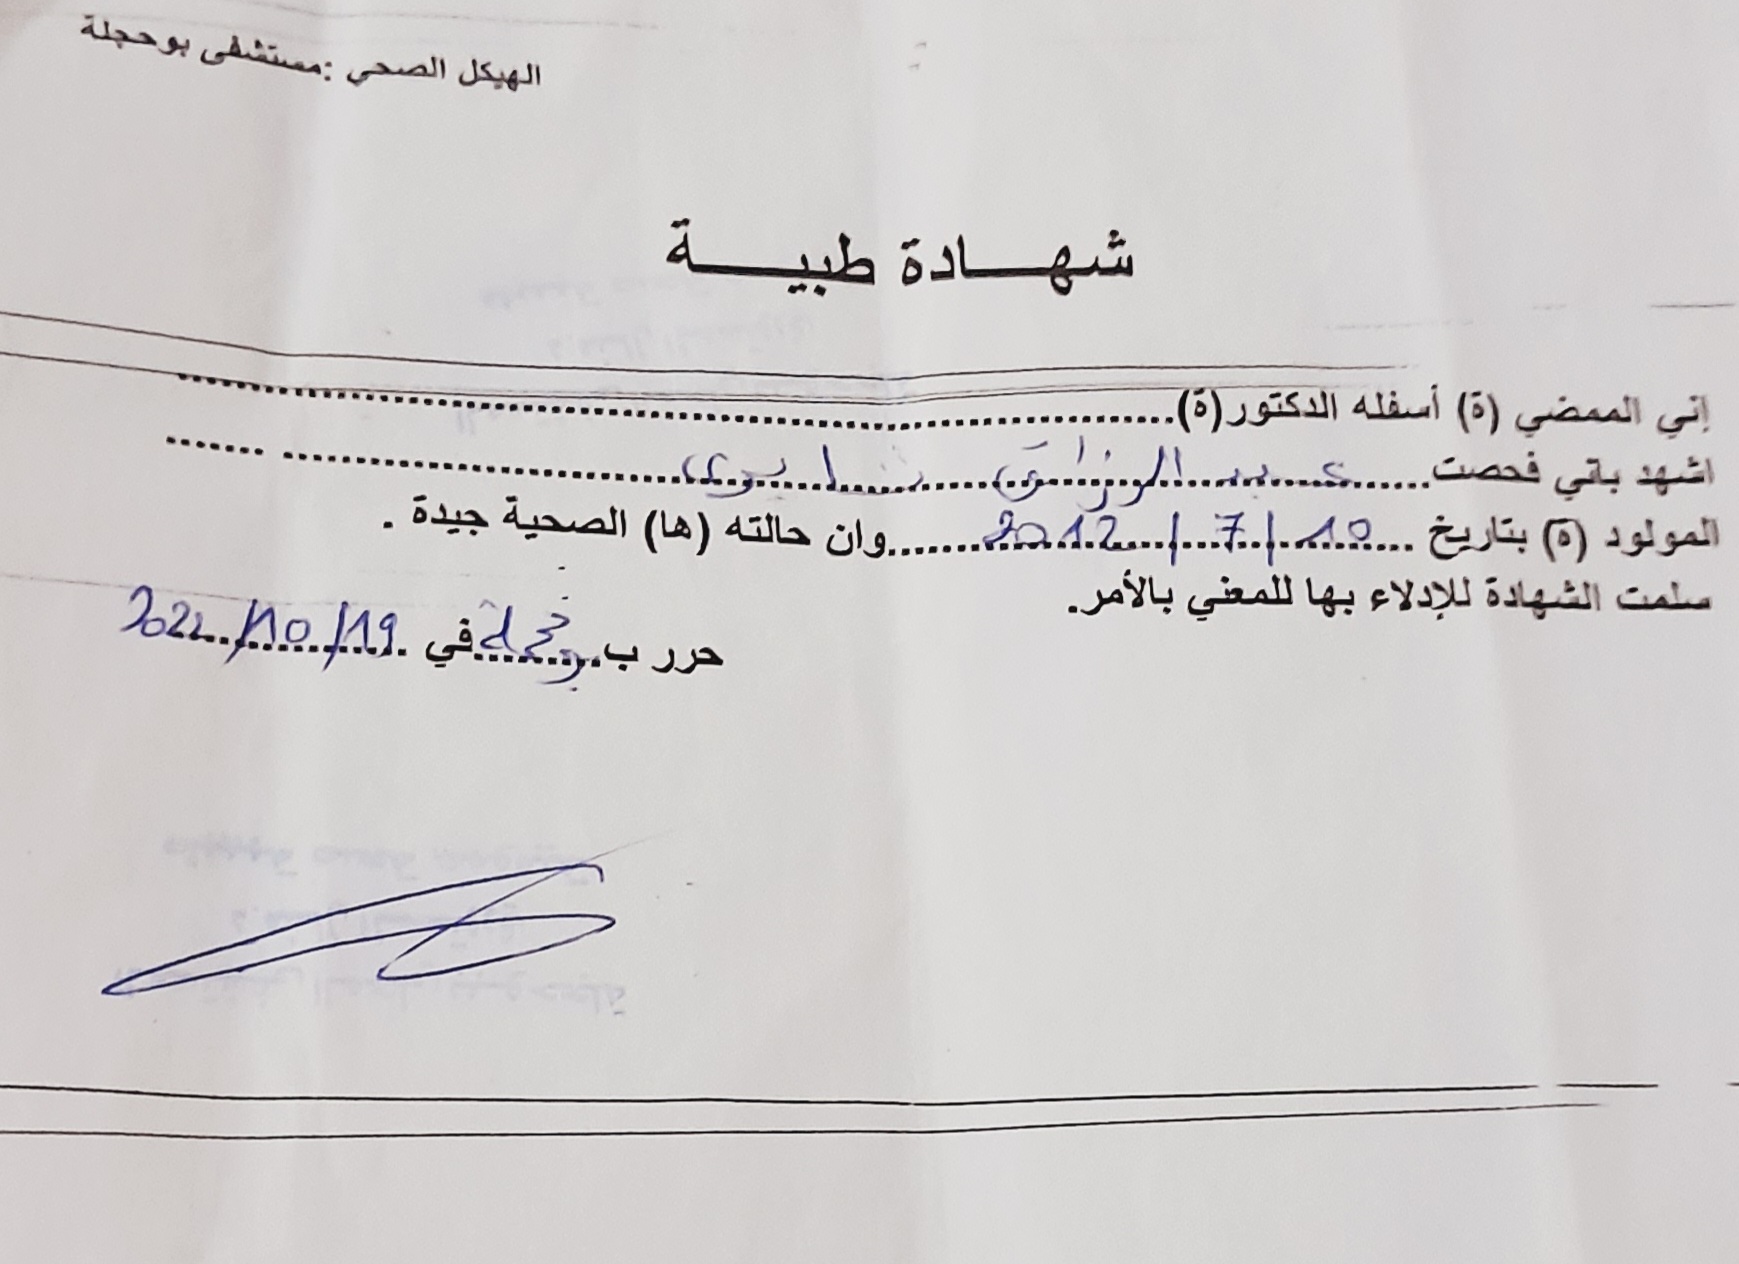 الهيكل الصحي :مستشفى بوحجلة
شهـــادة طبيـــة
إني الممضي (ة) أسفله الدكتور(ة)........................
اشهد باني فحصت......عبد الرزاق ...............
المولود (ة) بتاريخ ....10../..7../..2012......وان حالته (ها) الصحية جيدة .
سلمت الشهادة للإدلاء بها للمعني بالأمر.
حرر ب..بوحجلة..في ..19/10/2022